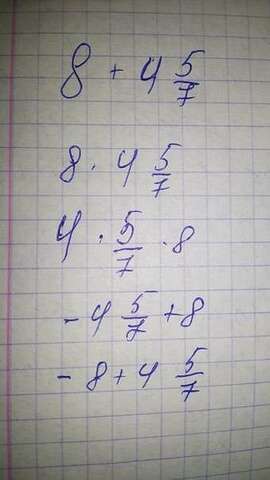 8 + 4 5/7
8 · 4 5/7
4 · 5/7 · 8
- 4 5/7 + 8
- 8 + 4 5/7